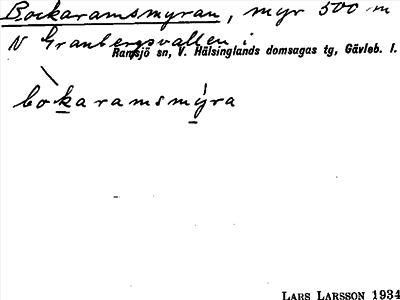 Bockaramsmyran, myr 500 m
N Granbergsvallen i
Ramsjö sn, V. Hälsinglands domsagas tg, Gävleb. l.
bòkaramsmýra
LARS LARSSON 1934